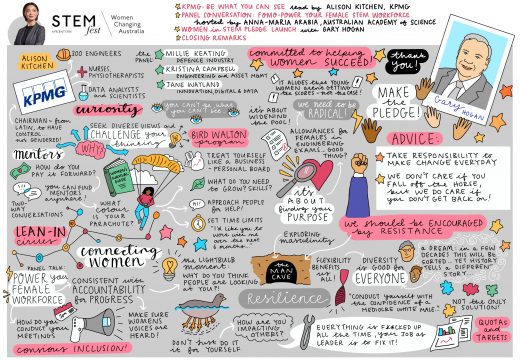 STEM
fest
Women
Changing
Australia
KPMG: BE WHAT YOU CAN SEE read by ALISON KITCHEN, KPMG
PANEL CONVERSATION: FOMO-POWER YOUR FEMALE STEM WORKFORCE
hosted by ANNA-MARIA ARABIA, AUSTRALIAN ACADEMY of SCIENCE
WOMEN in STEM PLEDGE LAUNCH with GARY HOGAN
CLOSING REMARKS
ALISON
KITCHEN
KPMG
300 ENGINEERS
NURSES,
PHYSIOTHERAPISTS
DATA ANALYSTS
and SCIENTISTS
the
PANEL
MILLIE KEATING
DEFENCE INDUSTRY
KRISTINA CAMPBELL
ENGINEERING and ASSET MGMT
TANE WAYLAND
INNOVATION, DIGITAL & DATA
committed to helping
women SUCCEED!
thank
you!
Gary
HOGAN
MAKE
the
PLEDGE!
curiosity
you CAN'T be what
you CAN'T SEE
IT'S ABOUT
WIDENING
the POOL!
we need to be
RADICAL!
CHAIRMAN - from
LATIN, to HAVE
CONTROL
not GENDERED!
SEEK DIVERSE VIEWS and
CHALLENGE your
thinking
WHY?
BIRD WALTON
program
mentors
HOW do YOU
PAY IT FORWARD?
you CAN FIND
MENTORS
ANYWHERE!
TWO-WAY
CONVERSATIONS
WHAT
COLOUR is
YOUR PARACHUTE?
TREAT YOURSELF
LIKE a BUSINESS
- PERSONAL BOARD
WHAT DO YOU NEED
TO GROW? SKILLS?
APPROACH PEOPLE
for HELP?
SET TIME LIMITS
"I'd like you to
work with me
over the next
6 months..."
ALLOWANCES for
FEMALES in
ENGINEERING
EXAMS. GOOD
THING?
it's
ABOUT
finding your
PURPOSE
EXPLORING
masculinity
ADVICE:
TAKE RESPONSIBILITY to
MAKE CHANGE EVERYDAY
WE DON'T CARE if YOU
FALL off the HORSE,
but WE DO CARE if
you DON'T GET BACK on!
we should be ENCOURAGED
by RESISTANCE
LEAN-IN
circles
PANEL TALK
connecting
WOMEN
POWER your
FEMALE
WORKFORCE
CONSISTENT with
ACCOUNTABILITY
for PROGRESS
HOW do YOU
CONDUCT your
MEETINGS
MAKE SURE
WOMENS
VOICES are
HEARD!
conscious INCLUSION!
the LIGHTBULB
MOMENT
WHY DO YOU THINK
PEOPLE are LOOKING
AT YOU??
THE
MAN
CAVE
FLEXIBILITY
BENEFITS
all!
DIVERSITY
is GOOD for
EVERYONE
a DREAM - in a FEW
DECADES THIS WILL BE
SORTED. YET HISTORY
TELLS a DIFFERENT
STORY
Resilience
"CONDUCT yourself with
the CONFIDENCE of a
MEDIOCRE WHITE MALE"
NOT the ONLY
SOLUTION!
QUOTAS
and
TARGETS
HOW are YOU
IMPACTING
OTHERS?
DON'T JUST DO IT
for YOURSELF
LEADER is to FIX it!